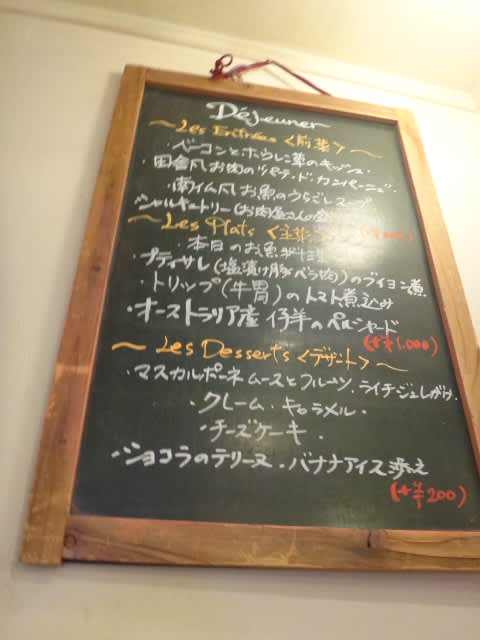 Déjeuner
~ Les Entrées <前菜> ~
・ベーコンとホウレン草のキッシュ
・田舎風お肉のパテ・ド・カンパーニュ
・南仏風お魚のうらごしスープ
シャルキュトリー(お肉屋さんの
~ Les Plats <主菜>
・本日のお魚
・プティサレ(塩漬け豚バラ肉)のブイヨン煮
・トリップ(牛胃)のトマト煮込み
・オーストラリア産 仔羊のペルシャード
(+¥1,000)
~ Les Desserts <デザート> ~
・マスカルポーネムースとフルーツ、ライチジュレがけ.
・クレーム・キャラメル・
・チーズケーキ.
・ショコラのテリーヌ・バナナアイス添え
(+¥200)